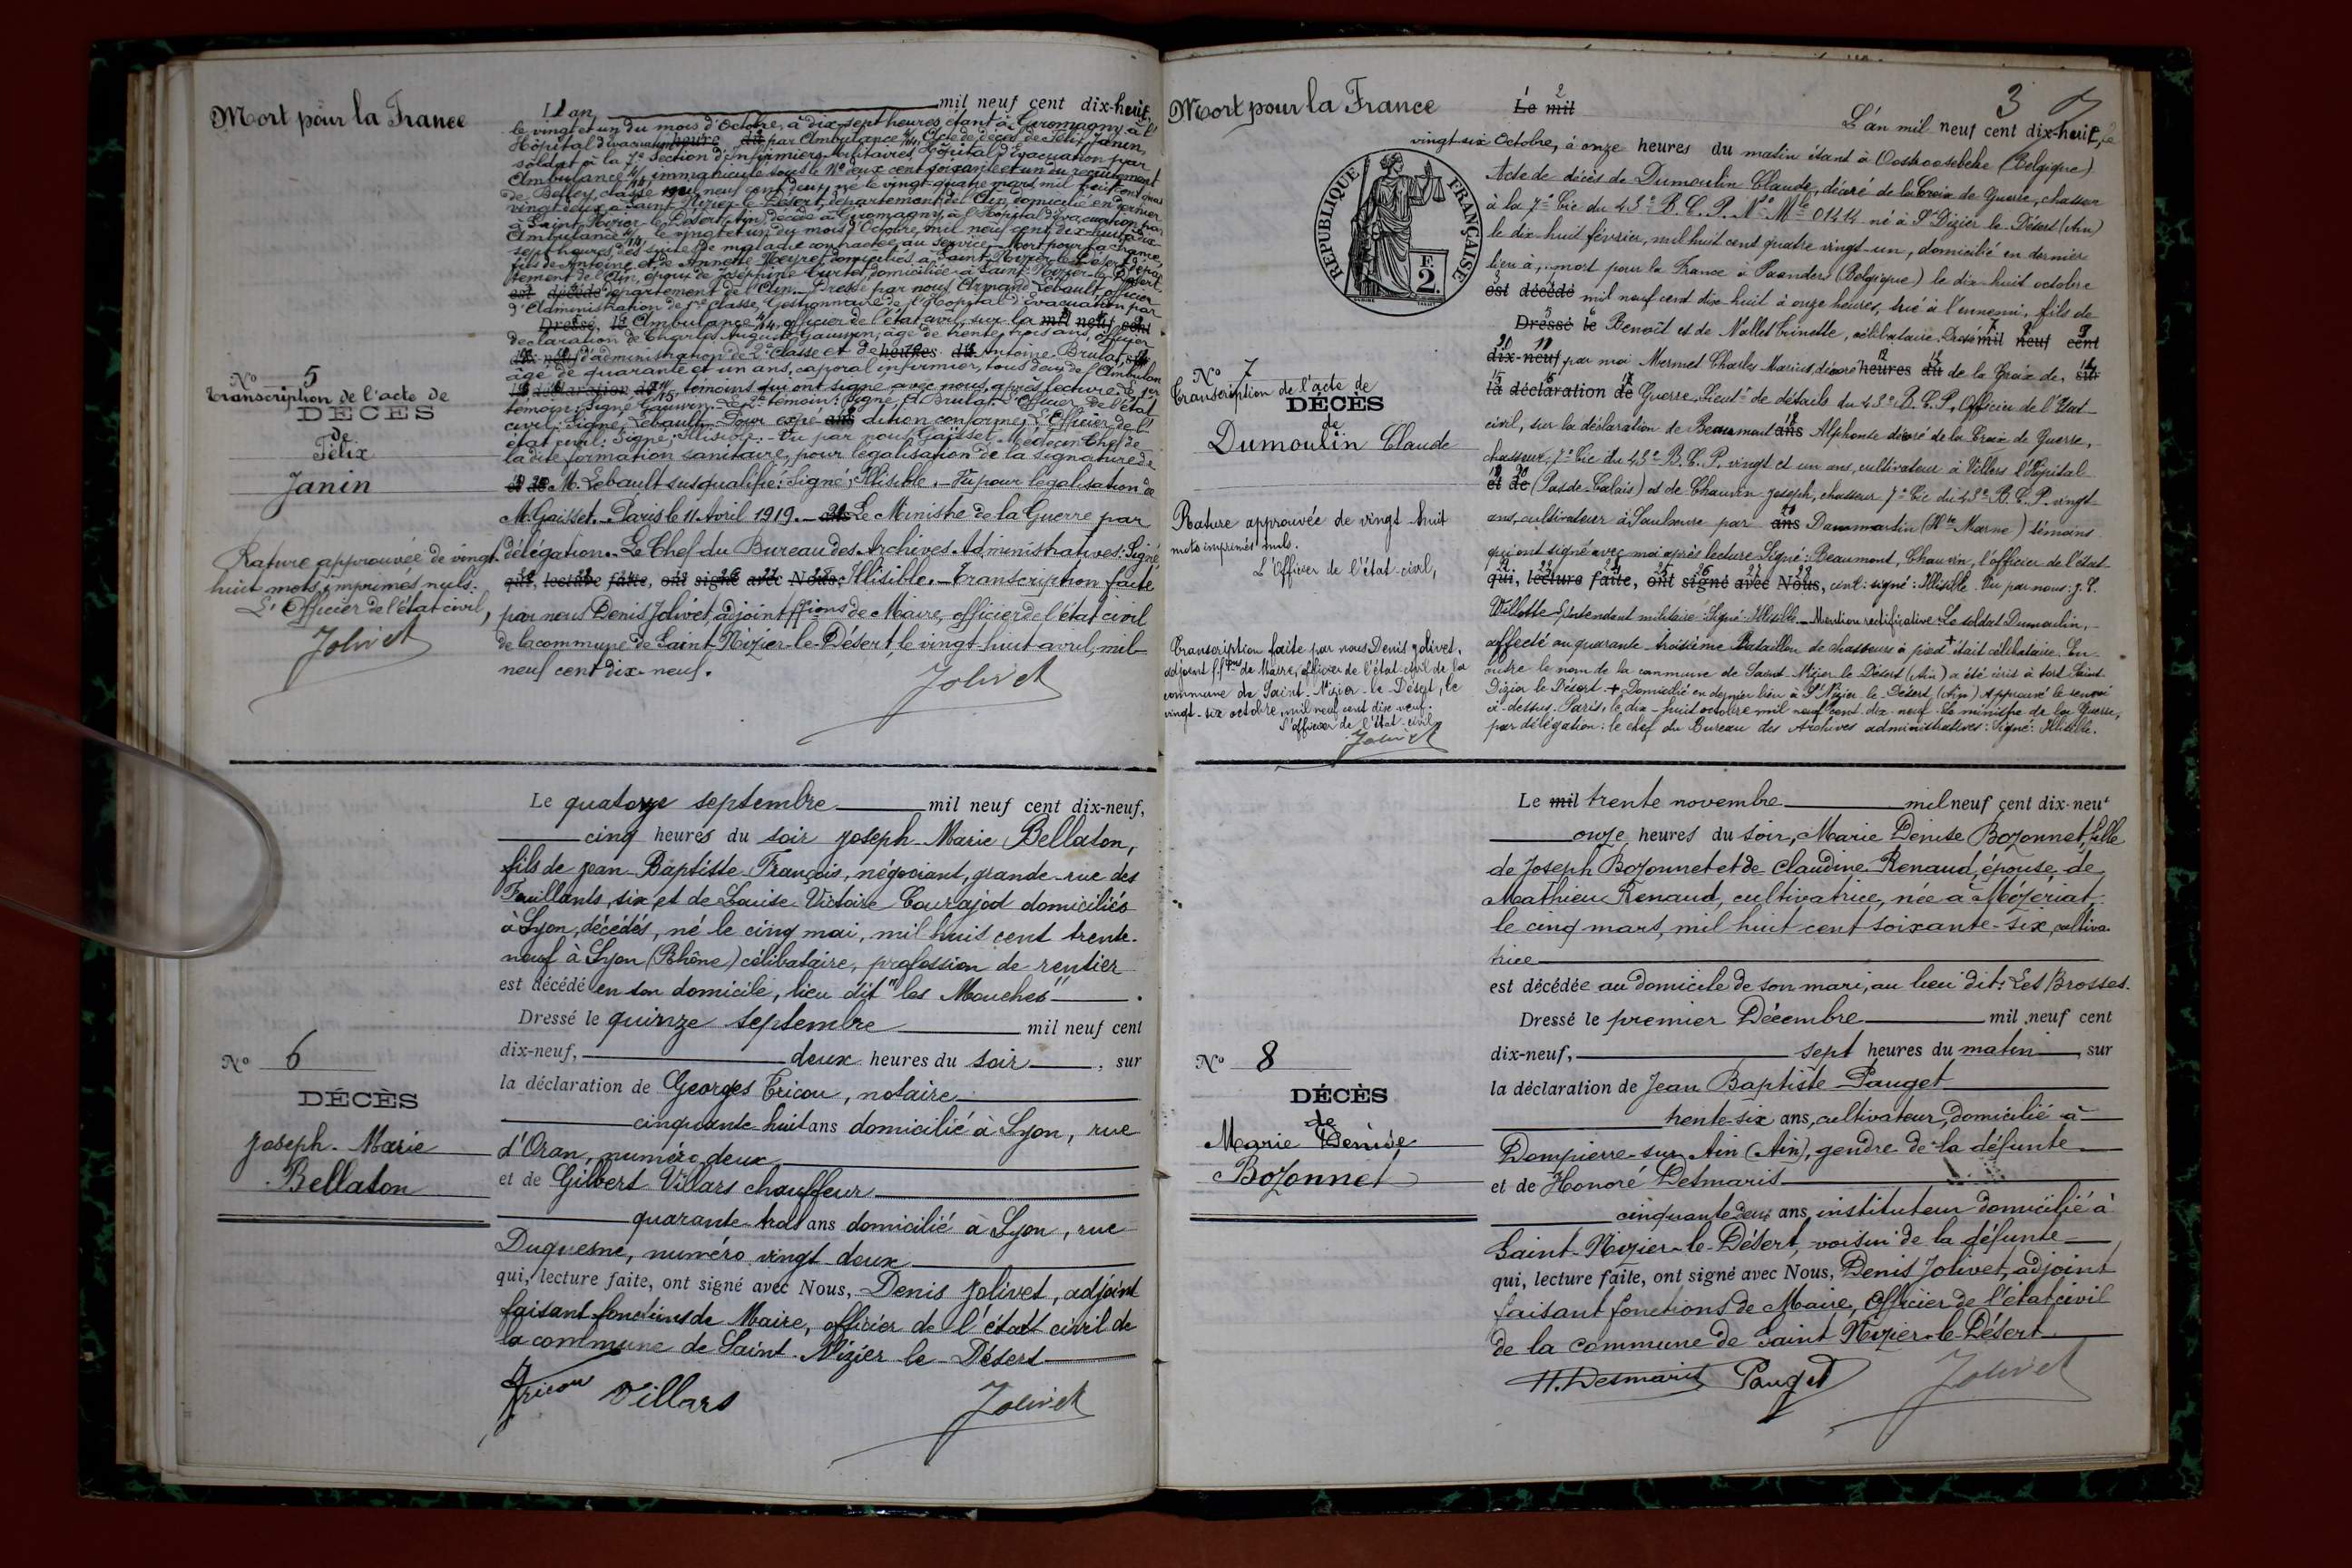 Mort pour la France
L'an mil neuf cent dix-huit,
le vingt et un du mois d'Octobre, à dix-sept heures, étant à Giromagny, à l'
Hôpital d'évacuation heure du par Ambulance 4/14, Acte de décès de Félix Janin,
soldat à la 7e Section d'infirmiers militaires, Hôpital d'Évacuation par
Ambulance 4/14, immatriculé sous le No deux cent soixante et un du recrutement
de Belley, classe mil neuf cent deux, né le vingt-quatre mars mil huit cent quatre
vingt deux à Saint Nizier-le-Désert, département de l'Ain, domicilié en dernier
à Saint Nizier-le-Désert (Ain), décédé à Giromagny, à l'Hôpital d'évacuation par
Ambulance 4/14, le vingt et un du mois d'Octobre, mil neuf cent dix-huit à dix-
sept heures, des suites de maladie contractée au service, Mort pour la France,
fils de Antoine et de Annette Neyret domiciliés à Saint-Nizier-le-Désert, dépar
tement de l'Ain, époux de Joséphine Curtet domiciliée à Saint-Nizier-le-Désert
est décédé département de l'Ain. Dressé par nous Armand Lebault officier
d'Administration de 1re Classe, Gestionnaire de l'Hôpital d'Évacuation par
Dressé, le Ambulance 4/14, officier de l'état civil, sur la mil neuf cent
déclaration de Charles Auguste Gauvin, âgé de trente trois ans, officier
dix-neuf d'administration de 2e Classe et de heures du Antoine Brulat, sur
âgé de quarante et un ans, caporal infirmier, tous deux de l'Ambulan
la déclaration de témoins qui ont signé avec nous après lecture. Le 1er
témoin: Signé Gauvin. Le 2e témoin: Signé, A Brulat. L'Officier de l'état
civil: Signé, Lebault. Pour expé ans dition conforme, L'Officier de l'
état civil: Signé, Illisible. Vu par nous Gaisset, Médecin Chef de
la dite formation sanitaire, pour légalisation de la signature de
et de M. Lebault susqualifié: Signé, Illisible. Vu pour légalisation de
M. Gaisset. Paris le 11 Avril 1919. ans Le Ministre de la Guerre par
délégation. Le Chef du Bureau des Archives Administratives: Signé
qui, lecture faite, ont signé avec Nous, Illisible. Transcription faite
par nous Denis Jolivet, adjoint ffions de Maire, officier de l'état civil
de la commune de Saint-Nizier-le-Désert, le vingt-huit avril, mil-
neuf cent dix-neuf.
Jolivet
No 5
Transcription de l'acte de
DÉCÈS
de
Félix
Janin
Rature approuvée de vingt-
huit mots imprimés nuls.
L'Officier de l'état civil,
Jolivet
Le quatorze septembre mil neuf cent dix-neuf,
cinq heures du soir Joseph-Marie Bellaton,
fils de Jean-Baptiste François, négociant, grande-rue des
Feuillants, six et de Louise Victoire Courajod domiciliés
à Lyon, décédés, né le cinq mai, mil huit cent trente-
neuf à Lyon (Rhône) célibataire, profession de rentier
est décédé en son domicile, lieu dit "les Mouches".
Dressé le quinze septembre mil neuf cent
dix-neuf, deux heures du soir, sur
la déclaration de Georges Tricou, notaire
cinquante-huit ans domicilié à Lyon, rue
d'Oran, numéro deux
et de Gilbert Villars chauffeur
quarante-trois ans domicilié à Lyon, rue
Duquesne, numéro vingt-deux
qui, lecture faite, ont signé avec Nous, Denis Jolivet, adjoint
faisant fonctions de Maire, officier de l'état civil de
la commune de Saint-Nizier le Désert
Tricou Villars Jolivet
No 6
DÉCÈS
Joseph-Marie
Bellaton
Mort pour la France
RÉPUBLIQUE FRANÇAISE
F.
2.
3
Le mil
L'an mil neuf cent dix-huit, le
vingt-six Octobre, à onze heures du matin étant à Oostroosebeke (Belgique)
Acte de décès de Dumoulin Claude, décoré de la Croix de Guerre, chasseur
à la 7e Cie du 43e B.C.P. No Mle 01414 né à St Dizier le Désert (Ain)
le dix-huit février, mil huit cent quatre vingt-un, domicilié en dernier
lieu à, mort pour la France à Paanders (Belgique) le dix-huit octobre
est décédé mil neuf cent dix-huit à onze heures, tué à l'ennemi, fils de
Dressé le Benoît et de Nallet Brinette, célibataire. Dressé mil neuf cent
dix-neuf par moi Mermet Charles Marius décoré heures du de la Croix de sur
la déclaration de Guerre, Lieutt de détails du 43e B.C.P, Officier de l'Etat-
civil, sur la déclaration de Beaumont ans Alphonse décoré de la Croix de Guerre,
chasseur, 7e Cie du 43e B.C.P. vingt et un ans, cultivateur à Villers l'Hôpital
et de (Pas de-Calais) et de Chauvin Joseph, chasseur 7e Cie du 43e B.C.P. vingt
ans, cultivateur à Saulxure par ans Dammartin (Hte Marne) témoins
qui ont signé avec moi après lecture Signé: Beaumont, Chauvin, l'officier de l'état
qui, lecture faite, ont signé avec Nous, civil: signé: Illisible. Vu par nous: J. P.
Villotte Intendant militaire: Signé: Illisible. Mention rectificative: Le soldat Dumoulin,
affecté au quarante troisième Bataillon de chasseurs à pied + était célibataire. En
outre le nom de la commune de Saint-Nizier le Désert (Ain) a été écrit à tort Saint-
Dizier le Désert. + Domicilié en dernier lieu à St Nizier le Désert, (Ain) Approuvé le renvoi
ci-dessus. Paris, le dix-huit octobre mil neuf cent dix neuf. Le ministre de la Guerre,
par délégation: le chef du Bureau des Archives administratives: Signé: Illisible.
No 7
Transcription de l'acte de
DÉCÈS
de
Dumoulin Claude
Rature approuvée de vingt huit
mots imprimés nuls.
L'Officier de l'état-civil,
Transcription faite par nous Denis Jolivet,
adjoint ffons de Maire, officier de l'état-civil de la
commune de Saint-Nizier-le-Désert, le
vingt-six octobre, mil neuf cent dix neuf.
L'officier de l'état-civil
Jolivet
Le mil trente novembre mil neuf cent dix-neuf
onze heures du soir, Marie Denise Bozonnet, fille
de Joseph Bozonnet et de Claudine Renaud, épouse de
Mathieu Renaud, cultivatrice, née à Mézériat
le cinq mars, mil huit cent soixante-six, cultiva-
trice
est décédée au domicile de son mari, au lieu dit: Les Brosses.
Dressé le premier Décembre mil neuf cent
dix-neuf, sept heures du matin, sur
la déclaration de Jean Baptiste Pauget
trente-six ans, cultivateur, domicilié à
Dompierre-sur-Ain (Ain), gendre de la défunte
et de Honoré Desmaris
cinquante deux ans, instituteur domicilié à
Saint-Nizier-le-Désert, voisin de la défunte
qui, lecture faite, ont signé avec Nous, Denis Jolivet, adjoint
faisant fonctions de Maire, Officier de l'état civil
de la commune de Saint Nizier-le-Désert
H. Desmaris Pauget Jolivet
No 8
DÉCÈS
de
Marie Denise
Bozonnet